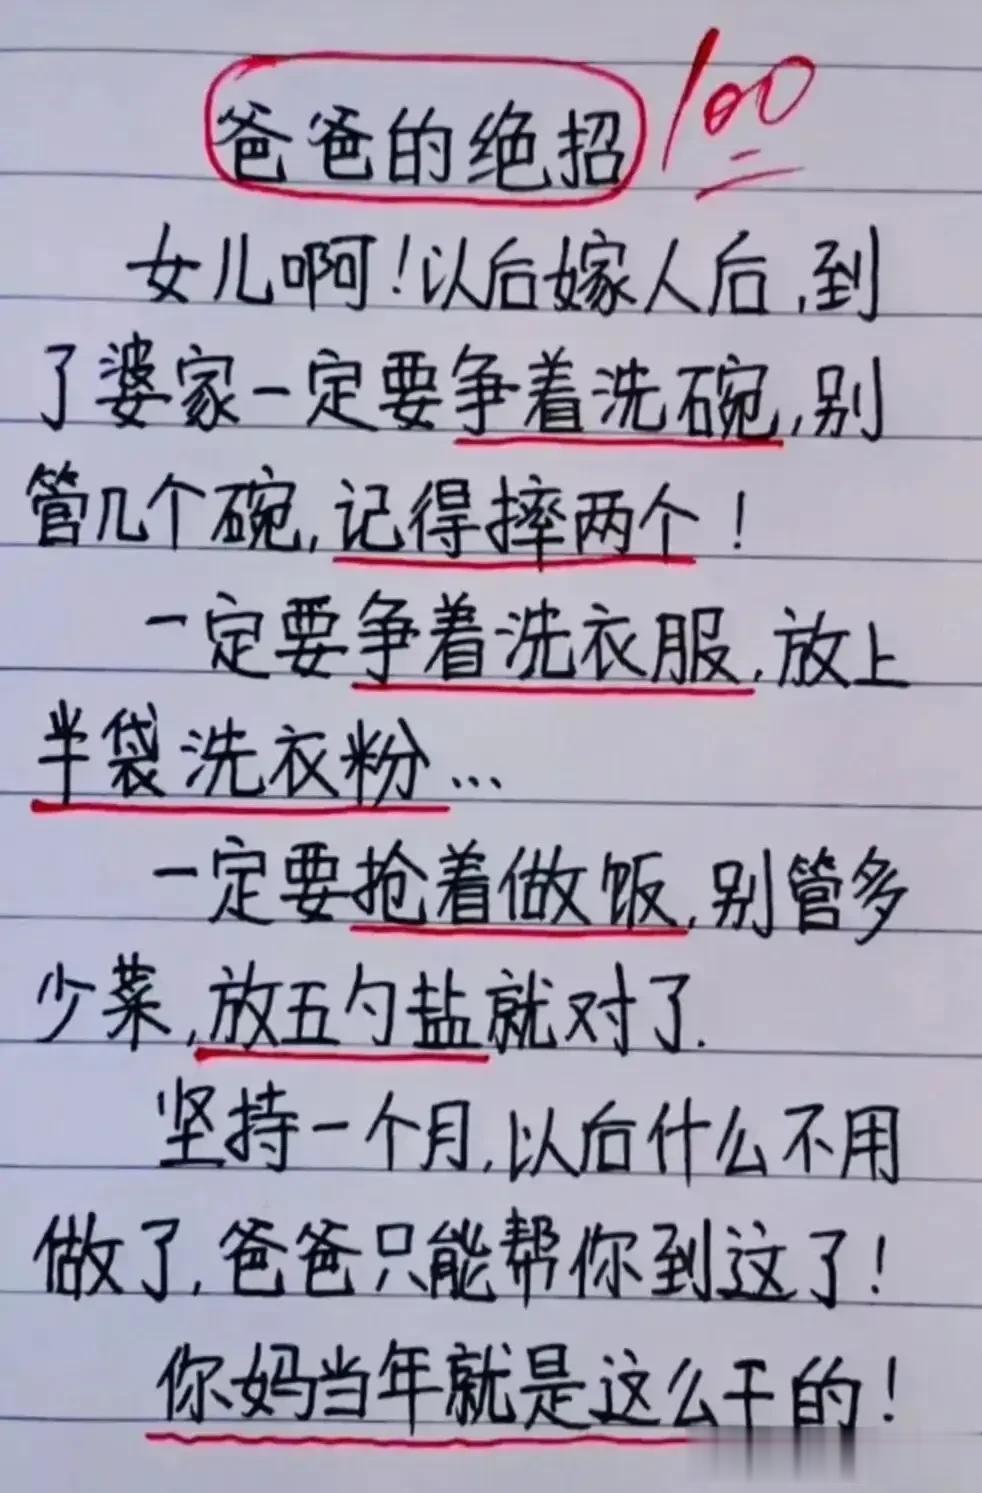 爸爸的绝招 100
女儿啊!以后嫁人后,到
了婆家一定要争着洗碗,别
管几个碗,记得摔两个!
一定要争着洗衣服,放上
半袋洗衣粉...
一定要抢着做饭,别管多
少菜,放五勺盐就对了.
坚持一个月,以后什么不用
做了,爸爸只能帮你到这了!
你妈当年就是这么干的!